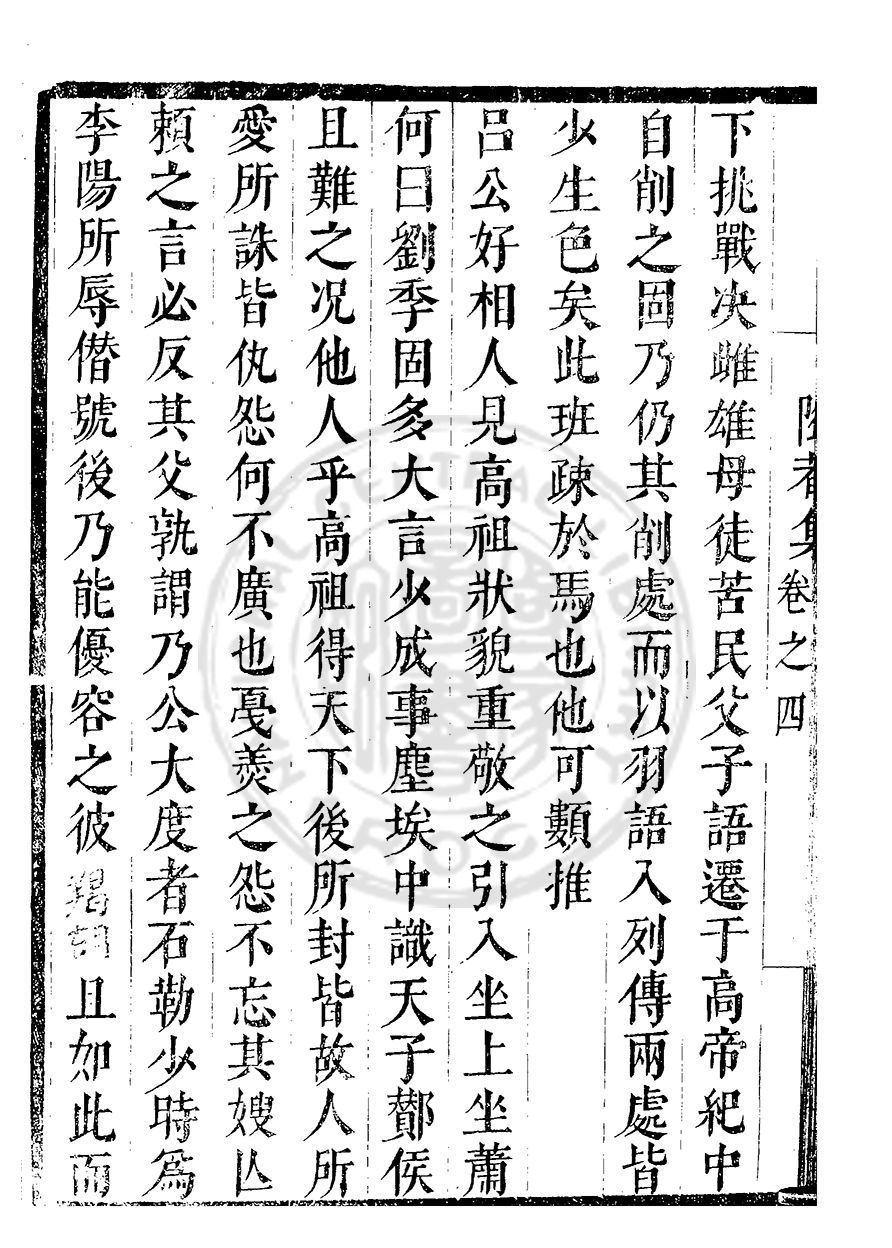 集卷之四
下挑戰决雌雄母徒苦民父子語遷于高帝紀中
自削之固乃仍其削處而以羽語入列傳兩處皆
少生色矣此班疎於馬也他可類推
呂公好相人見高祖狀貌重敬之引入坐上坐蕭
何曰劉季固多大言少成事塵埃中識天子酇侯
且難之况他人乎高祖得天下後所封皆故人所
愛所誅皆仇怨何不廣也戞羮之怨不忘其嫂亾
賴之言必反其父孰謂乃公大度者石勒少時爲
李陽所辱僭號後乃能優容之彼羯胡且如此而